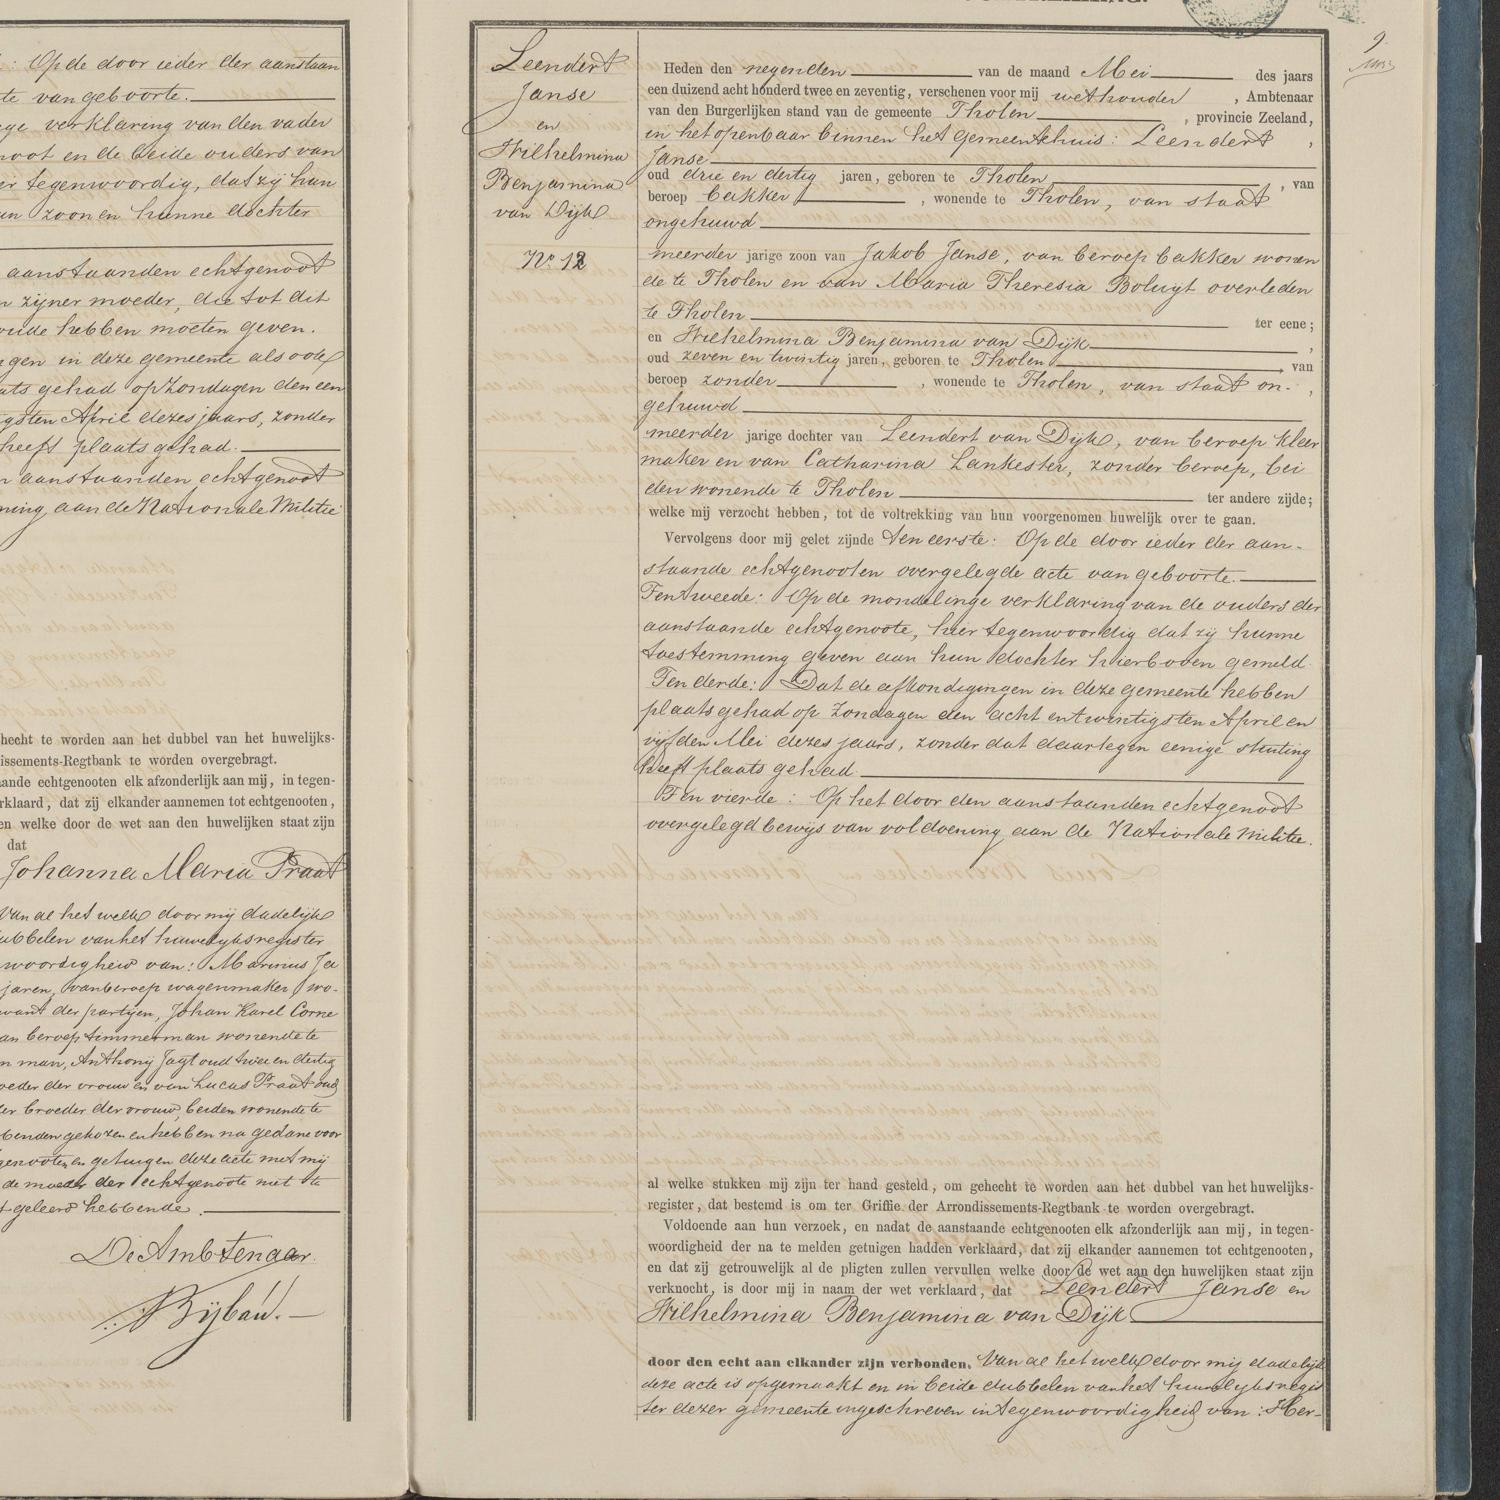 : Op de door ieder der aanstaan
te van geboorte.
ge verklaring van den vader
noot en de beide ouders van
er tegenwoordig, dat zij hun
un zoon en hunne dochter
aanstaanden echtgenoot
n zijner moeder, die tot dit
oude hebben moeten geven.
gen in deze gemeente als ook
ats gehad op Zondagen den een
gsten April dezes jaars, zonder
heeft plaats gehad.
n aanstaanden echtgenoot
ning aan de Nationale Militie
hecht te worden aan het dubbel van het huwelijks-
issements-Regtbank te worden overgebragt.
aande echtgenooten elk afzonderlijk aan mij, in tegen-
rklaard, dat zij elkander aannemen tot echtgenooten,
en welke door de wet aan den huwelijken staat zijn
dat
Johanna Maria Praat
Van al het welk door mij dadelijk
ubbelen van het huwelijksregister
woordigheid van: Marinus Ja
jaren, van beroep wagenmaker, wo-
want der partijen, Johan Karel Corne
an beroep timmerman wonende te
n man, Anthonij Jagt oud twee en dertig
oeder der vrouw en van Lucas Praat oud
er broeder der vrouw, beiden wonende te
benden gekozen en hebben na gedane voor
genooten en getuigen deze acte met mij
de moeder der echtgenoote niet te
geleerd hebbende.
De Ambtenaar.
Bijbau.
9.
Leendert
Janse
en
Wilhelmina
Benjamina
van Dijk
No. 12
Heden den negenden van de maand Mei des jaars
een duizend acht honderd twee en zeventig, verschenen voor mij wethouder, Ambtenaar
van den Burgerlijken stand van de gemeente Tholen, provincie Zeeland,
in het openbaar binnen het Gemeentehuis: Leendert,
Janse
oud drie en dertig jaren, geboren te Tholen, van
beroep bakker, wonende te Tholen, van staat
ongehuwd
meerder jarige zoon van Jakob Janse, van beroep bakker wonen
de te Tholen en van Maria Theresia Boluijt overleden
te Tholen ter eene;
en Wilhelmina Benjamina van Dijk,
oud zeven en twintig jaren, geboren te Tholen, van
beroep zonder, wonende te Tholen, van staat on-,
gehuwd
meerder jarige dochter van Leendert van Dijk, van beroep kleer
maker en van Catharina Lankester, zonder beroep, bei
den wonende te Tholen ter andere zijde;
welke mij verzocht hebben, tot de voltrekking van hun voorgenomen huwelijk over te gaan.
Vervolgens door mij gelet zijnde Ten eerste: Op de door ieder der aan-
staande echtgenooten overgelegde acte van geboorte.
Ten tweede: Op de mondelinge verklaring van de ouders der
aanstaande echtgenoote, hier tegenwoordig dat zij hunne
toestemming geven aan hun dochter hierboven gemeld.
Ten derde: Dat de afkondigingen in deze gemeente hebben
plaats gehad op Zondagen den acht en twintigsten April en
vijfden Mei dezes jaars, zonder dat daartegen eenige stuiting
heeft plaats gehad
Ten vierde: Op het door den aanstaanden echtgenoot
overgelegd bewijs van voldoening aan de Nationale Militie.
al welke stukken mij zijn ter hand gesteld, om gehecht te worden aan het dubbel van het huwelijks-
register, dat bestemd is om ter Griffie der Arrondissements-Regtbank te worden overgebragt.
Voldoende aan hun verzoek, en nadat de aanstaande echtgenooten elk afzonderlijk aan mij, in tegen-
woordigheid der na te melden getuigen hadden verklaard, dat zij elkander aannemen tot echtgenooten,
en dat zij getrouwelijk al de pligten zullen vervullen welke door de wet aan den huwelijken staat zijn
verknocht, is door mij in naam der wet verklaard, dat Leendert Janse en
Wilhelmina Benjamina van Dijk
door den echt aan elkander zijn verbonden. Van al het welk door mij dadelijk
deze acte is opgemaakt en in beide dubbelen van het huwelijksregis
ter dezer gemeente ingeschreven in tegenwoordigheid van: Her-